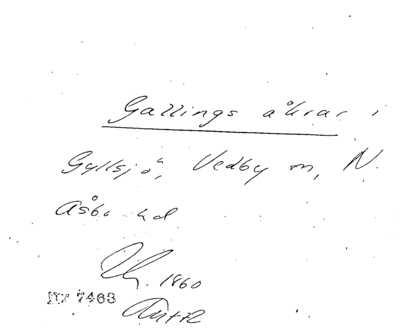 Gallings åkrar i
Gyllsjö, Vedby sn, N.
Åsbo hd
1860
Nr 7468